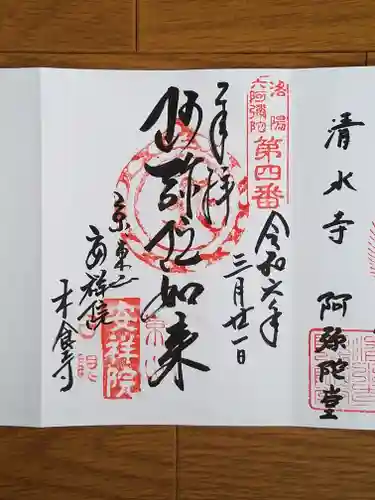 清水寺 阿弥陀堂
洛陽
六阿弥陀
第四番
令和六年
三月廿一日
奉拝
阿弥陀如来
京東山
安祥院
木食寺
安祥院